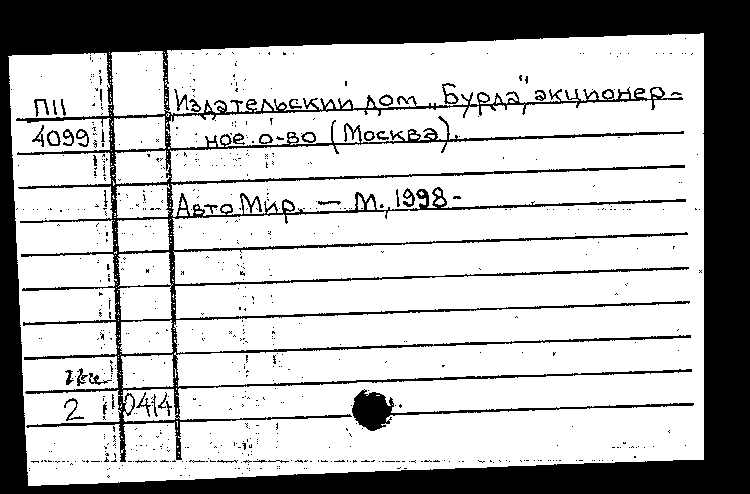 П11
4099
Издательский дом „Бурда", акционер-
ное о-во (Москва).
АвтоМир. — М., 1998 -
2 0414